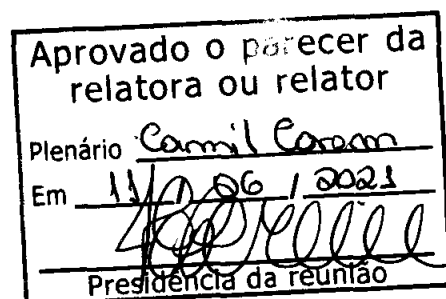 Aprovado o parecer da
relatora ou relator
Plenário Camil Caram
Em 11 / 06 / 2021
Presidência da reunião